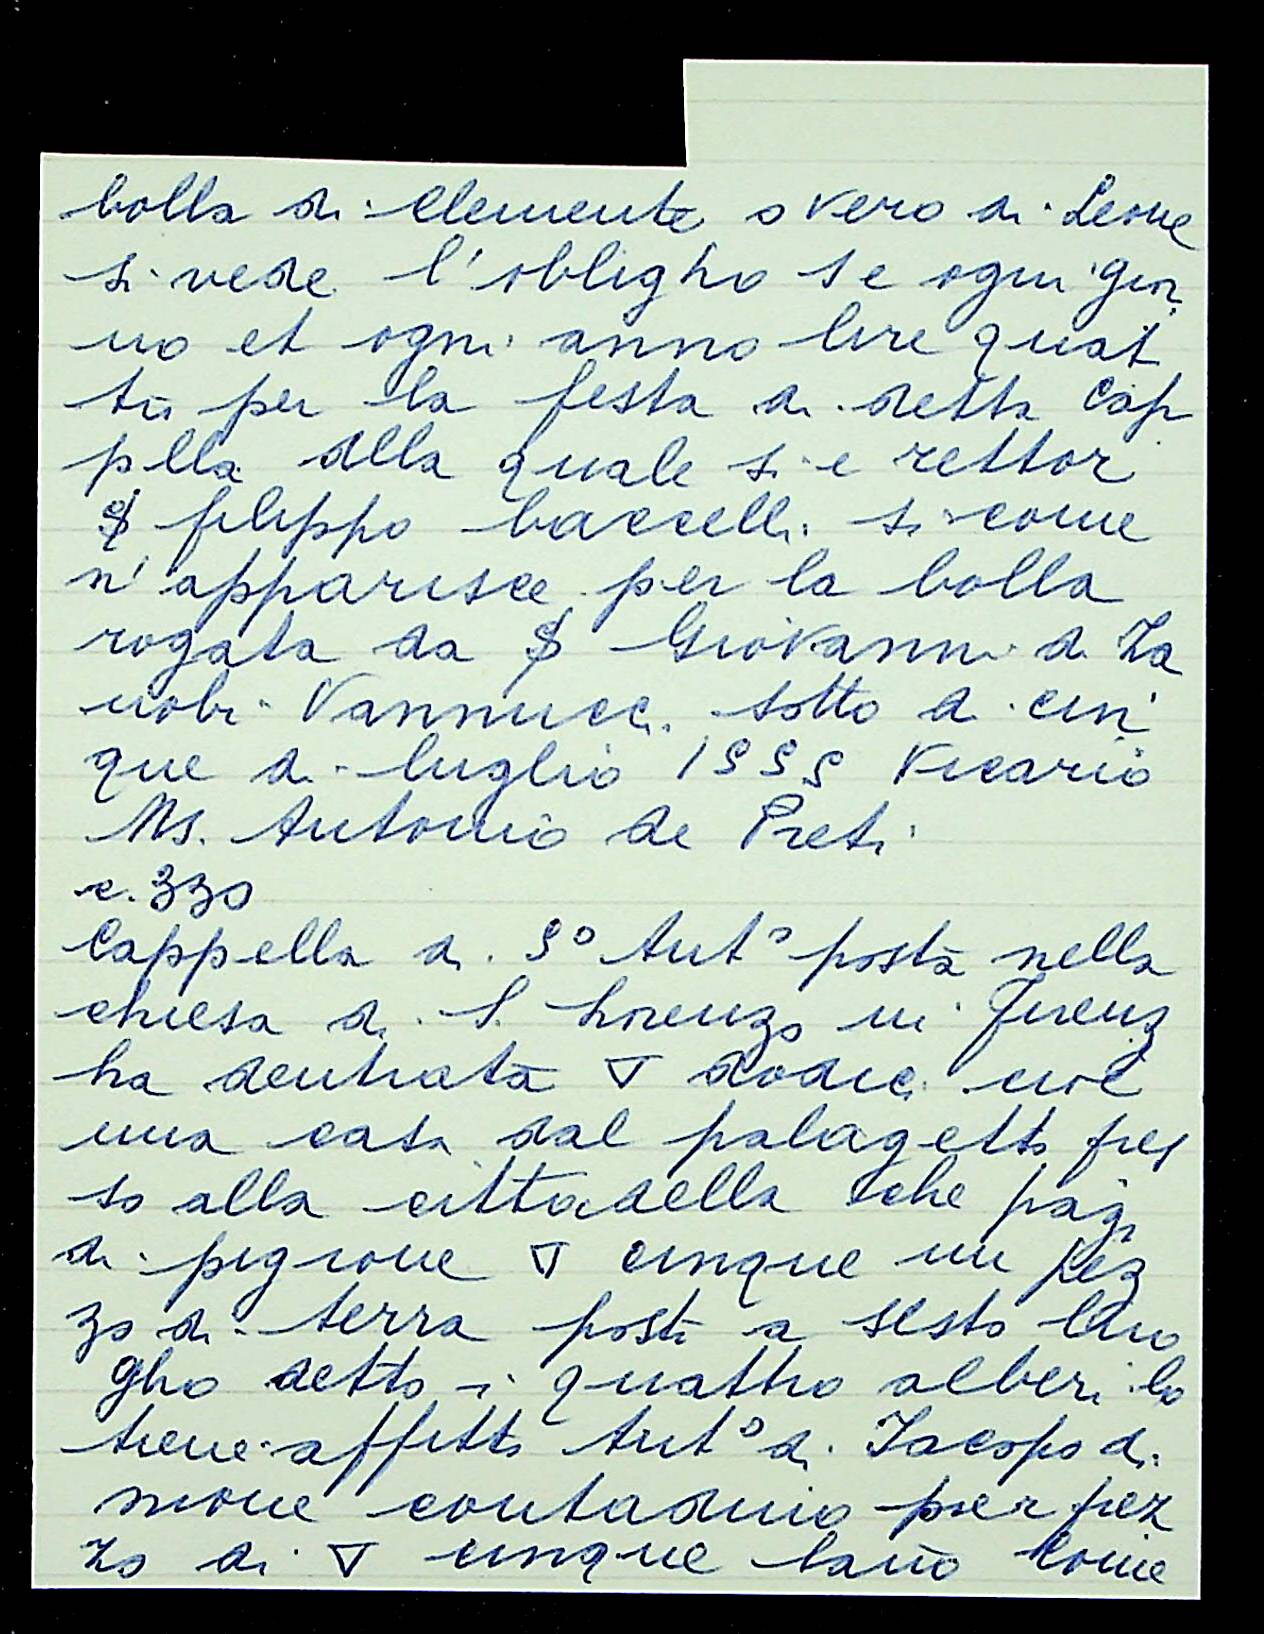 bolla di Clemente o vero di Leone
si vede l'obligho se ogni gior
no et ogni anno lire quat
tro per la festa di detta Cap
pella alla quale si e rettor
S filippo baccelli si come
n'apparisce per la bolla
rogata da S Giovanni di Za
nobi Vannucci sotto di cin
que di luglio 1555 Vicario
Ms. Antonio de Preti
c. 330
Cappella di S° Ant° posta nella
chiesa di S. Lorenzo in firenz
ha dentrata ▽ dodici cioe
una casa dal palagetto pres
so alla cittadella che paga
di pigione ▽ cinque un pez
zo di terra posto a sesto luo
gho detto i quattro alberi lo
tiene affitto Ant° di Iacopo di
mone contadino per prez
zo di ▽ cinque lano come